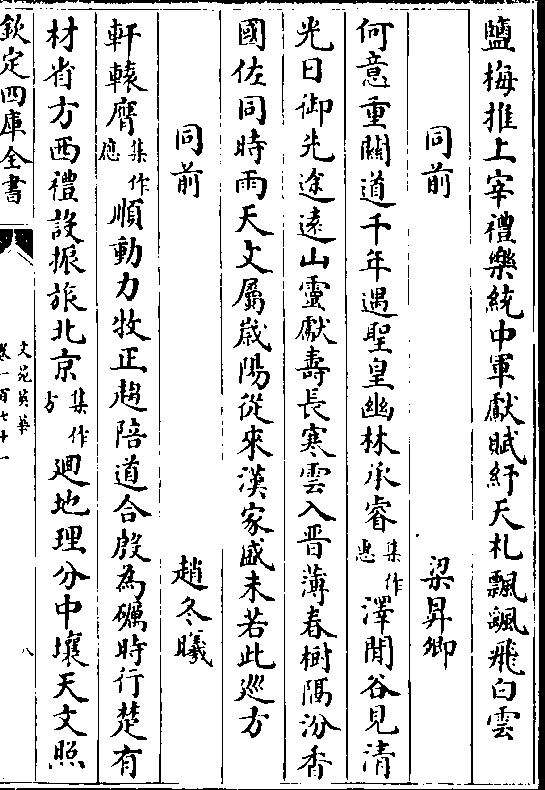 鹽梅推上宰禮樂統中軍獻賦紆天札飄颻飛白雲
同前 梁昇卿
何意重關道千年遇聖皇幽林承睿集作惠澤閒谷見清
光日御先途遠山靈獻壽長寒雲入晋薄春樹隔汾香
國佐同時雨天文屬歲陽從來漢家盛未若此巡方
同前 趙冬曦
軒轅膺集作應順動力牧正趨陪道合殷為礪時行楚有
材省方西禮設振旅北京集作方廻地理分中壤天文照
欽定四庫全書
文苑英華
卷一百七十一
八